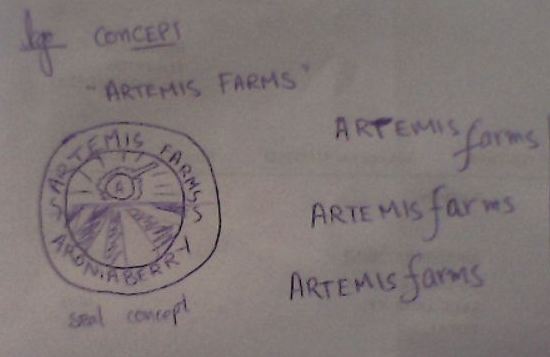 CONCEPT
"ARTEMIS FARMS"
ARTEMIS FARMS
A
ARONIABERRY
seal concept
ARTEMIS farms
ARTEMIS farms
ARTEMIS farms